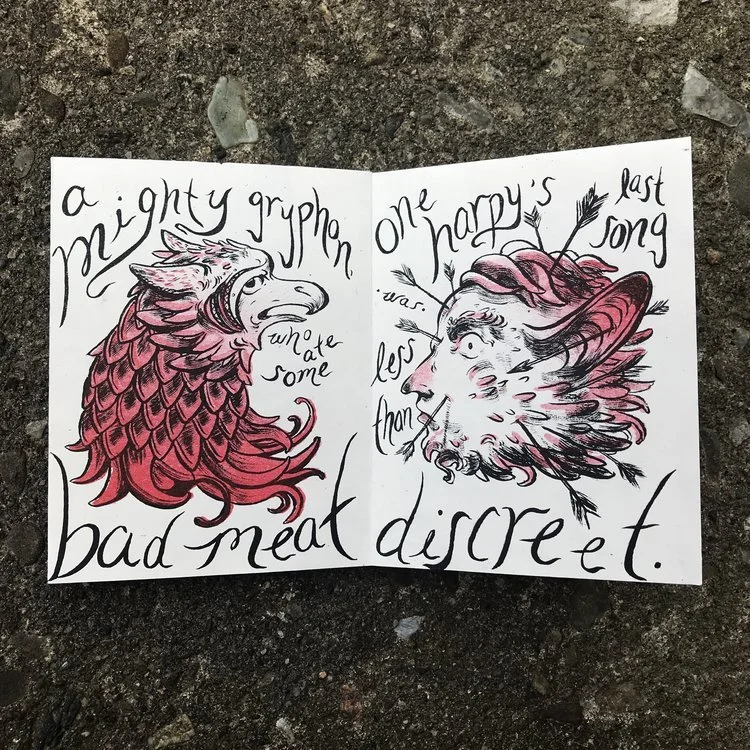 a
mighty gryphon
who
ate
some
bad meat
one
harpy's
last
song
.was.
less
than
discreet.